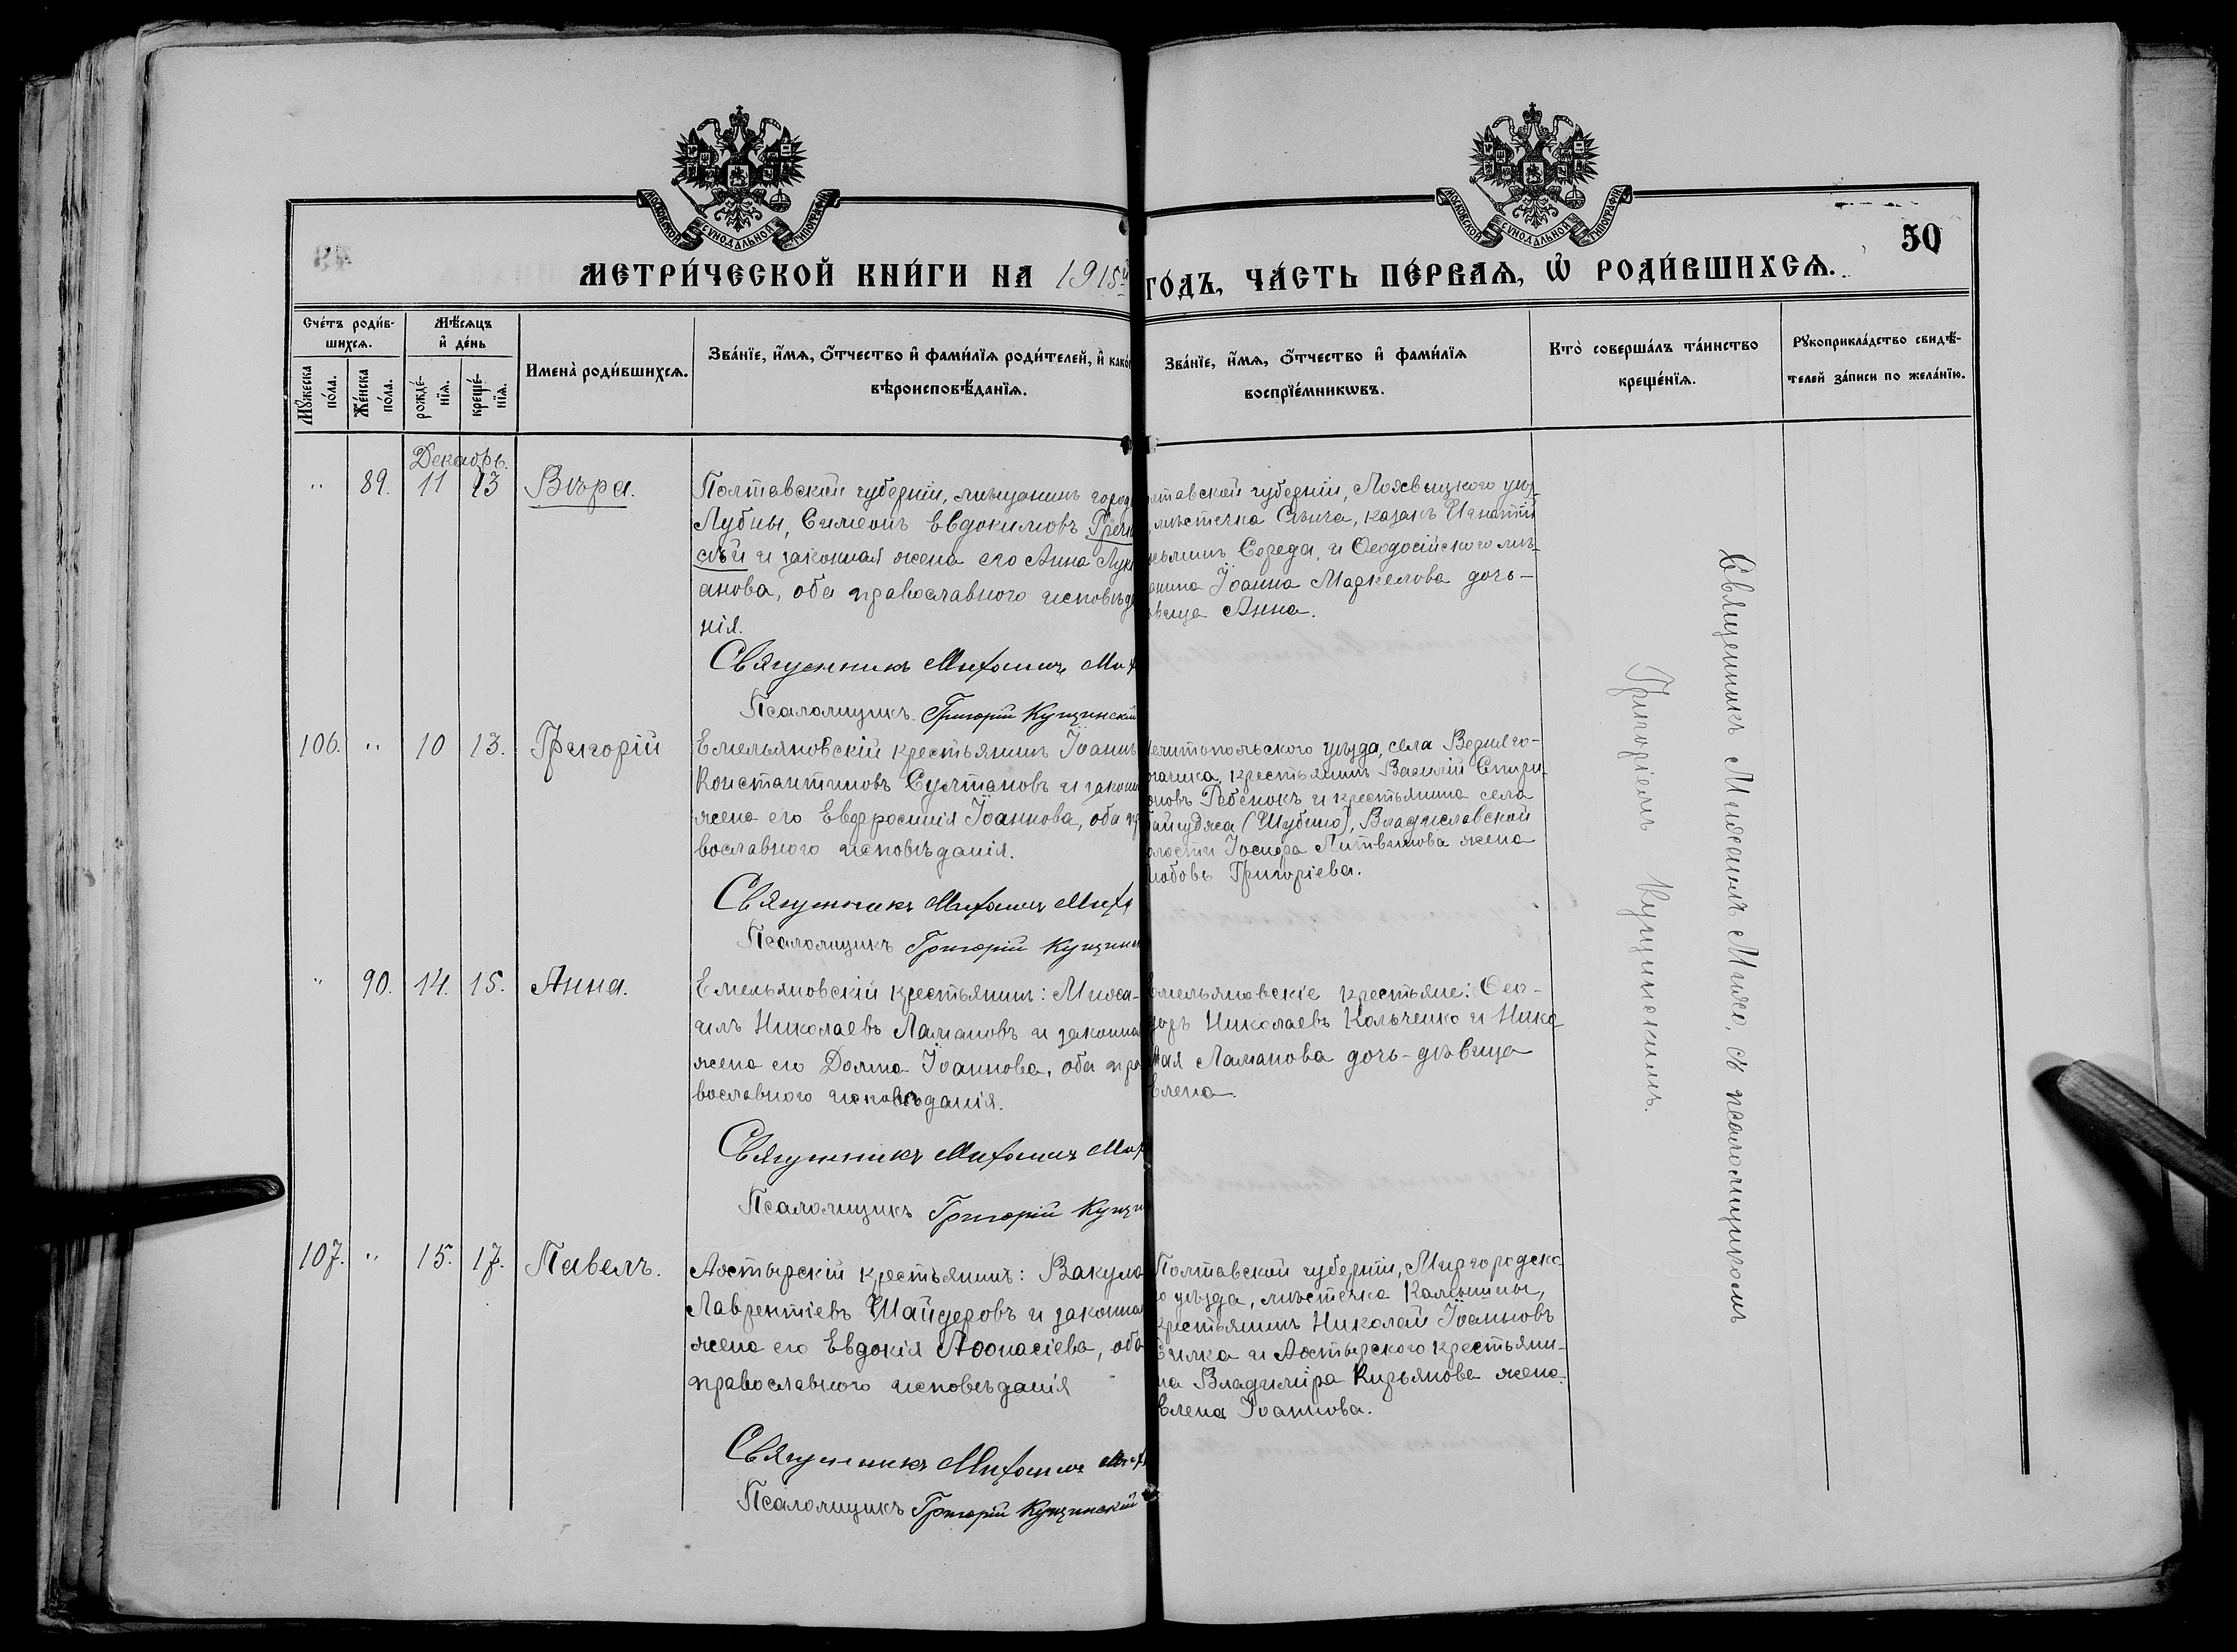 МОСКОВСКОЙ СѴНОДАЛЬНОЙ ТИПОГРАФІИ
МОСКОВСКОЙ СѴНОДАЛЬНОЙ ТИПОГРАФІИ
50
МЕТРИ́ЧЕСКОЙ КНИ́ГИ НА 1915й
ГО́ДЪ, ЧА́СТЬ ПЕ́РВАѦ, Ѡ҆ РОДИ́ВШИХСѦ.
Сче́тъ роди́в-
шихсѧ.
Мꙋ́жеска по́ла.
Же́нска по́ла.
Мѣ́сѧцъ
и҆ де́нь
рожде́-нїѧ.
креще́-нїѧ.
Имена̀ роди́вшихсѧ.
Зва́нїе, и҆́мѧ, ѻ҆́тчество и҆ фами́лїѧ роди́телей, и҆ како́
вѣроисповѣ́данїѧ.
Зва́нїе, и҆́мѧ, ѻ҆́тчество и҆ фами́лїѧ
воспрїе́мникѡвъ.
Кто̀ соверша́лъ та́инство
креще́нїѧ.
Рꙋкоприкла́дство свидѣ́-
телей за́писи по жела́нїю.
Декабрь.
" 89. 11 13 Вѣра.
Полтавской губерніи, мѣщанинъ город
Лубны, Симеонъ Евдокимовъ Гречи
ный и законная жена его Анна Лук
анова, оба православного исповѣда
нія.
Священникъ Михаилъ Мих
Псаломщикъ Григорій Кущинскій
лтавской губерніи, Лохвицкого уѣз-
мѣстечка Снѣча, казакъ Игнатій
зьминъ Середа, и Ѳеодосійского мѣ-
анина Іоанна Маркелова дочь-
вица Анна.
106. " 10 13. Григорій
Емельяновскій крестьянинъ Іоаннъ
Константиновъ Султановъ и законн
жена его Евфросинія Іоаннова, оба пр
вославного исповѣданія.
Священникъ Михаилъ Миха
Псаломщикъ Григорій Кущинс
елитопольского уѣзда, села Верхнего-
гачика, крестьянинъ Василій Спири-
оновъ Ребенокъ и крестьянина села
байгуджа (Шубино), Владиславской
олости Іосифа Литвинова жена
юбовь Григоріева.
" 90. 14. 15. Анна.
Емельяновскій крестьянинъ: Миха-
илъ Николаевъ Ламановъ и законна
жена его Домна Іоаннова, оба пра
вославного исповѣданія.
Священникъ Михаилъ Мих
Псаломщикъ Григорій Кущи
Емельяновскіе крестьяне: Ѳео-
доръ Николаевъ Кольченко и Нико
лая Ламанова дочь-дѣвица
Елена.
107. " 15. 17. Павелъ.
Аостырскій крестьянинъ: Вакула
Лаврентіевъ Шайдеровъ и законна
жена его Евдокія Аѳонасіева, оба
православного исповѣданія
Священникъ Михаилъ Мих
Псаломщикъ Григорій Кущинскій
Полтавской губерніи, Миргородско
го уѣзда, мѣстечка Камышны,
крестьянинъ Николай Іоанновъ
Силка и Аостырского крестьяни-
на Владиміра Кирьянова жена
Елена Іоаннова.
Священникъ Михаилъ Михо, съ псаломщикомъ
Григоріемъ Кущинскимъ.